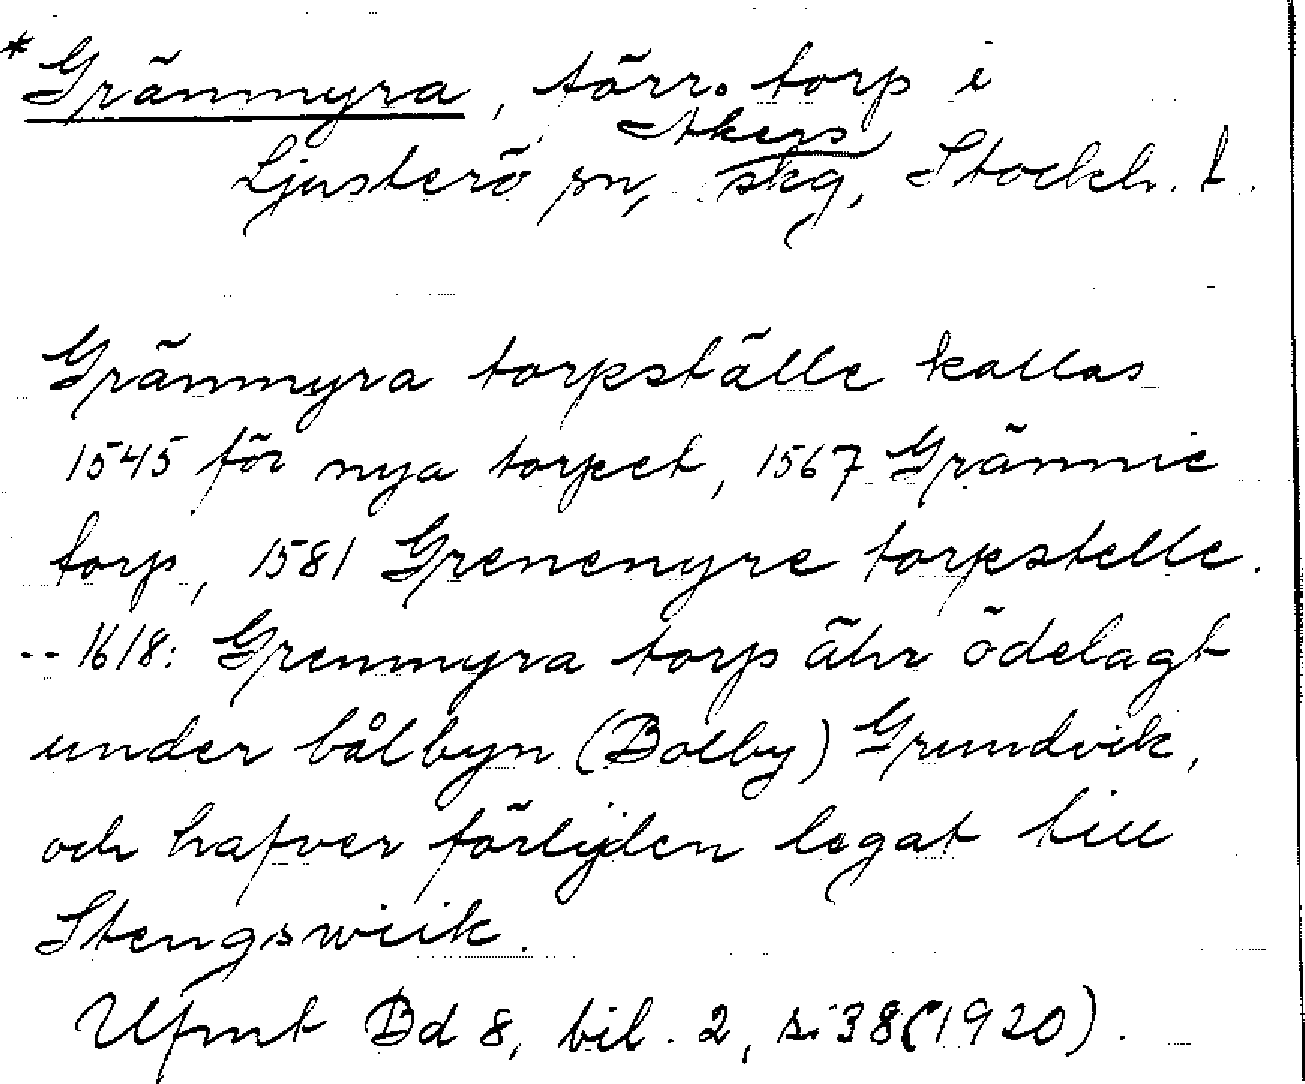 *Grännmyra, törr. torp i
Ljusterö sn, Åkers skg, Stockh. l.
Grännmyra torpställe kallas
1545 för nya torpet, 1567 Grännie
torp, 1581 Grenenyre torpstelle.
-- 1618: Grenmyra torp ähr ödelagt
under bålbyn (Bolby) Grundvik,
och hafver förlijden legat till
Stengswiik.
Ufmt Bd 8, bil. 2, s. 38 (1920).